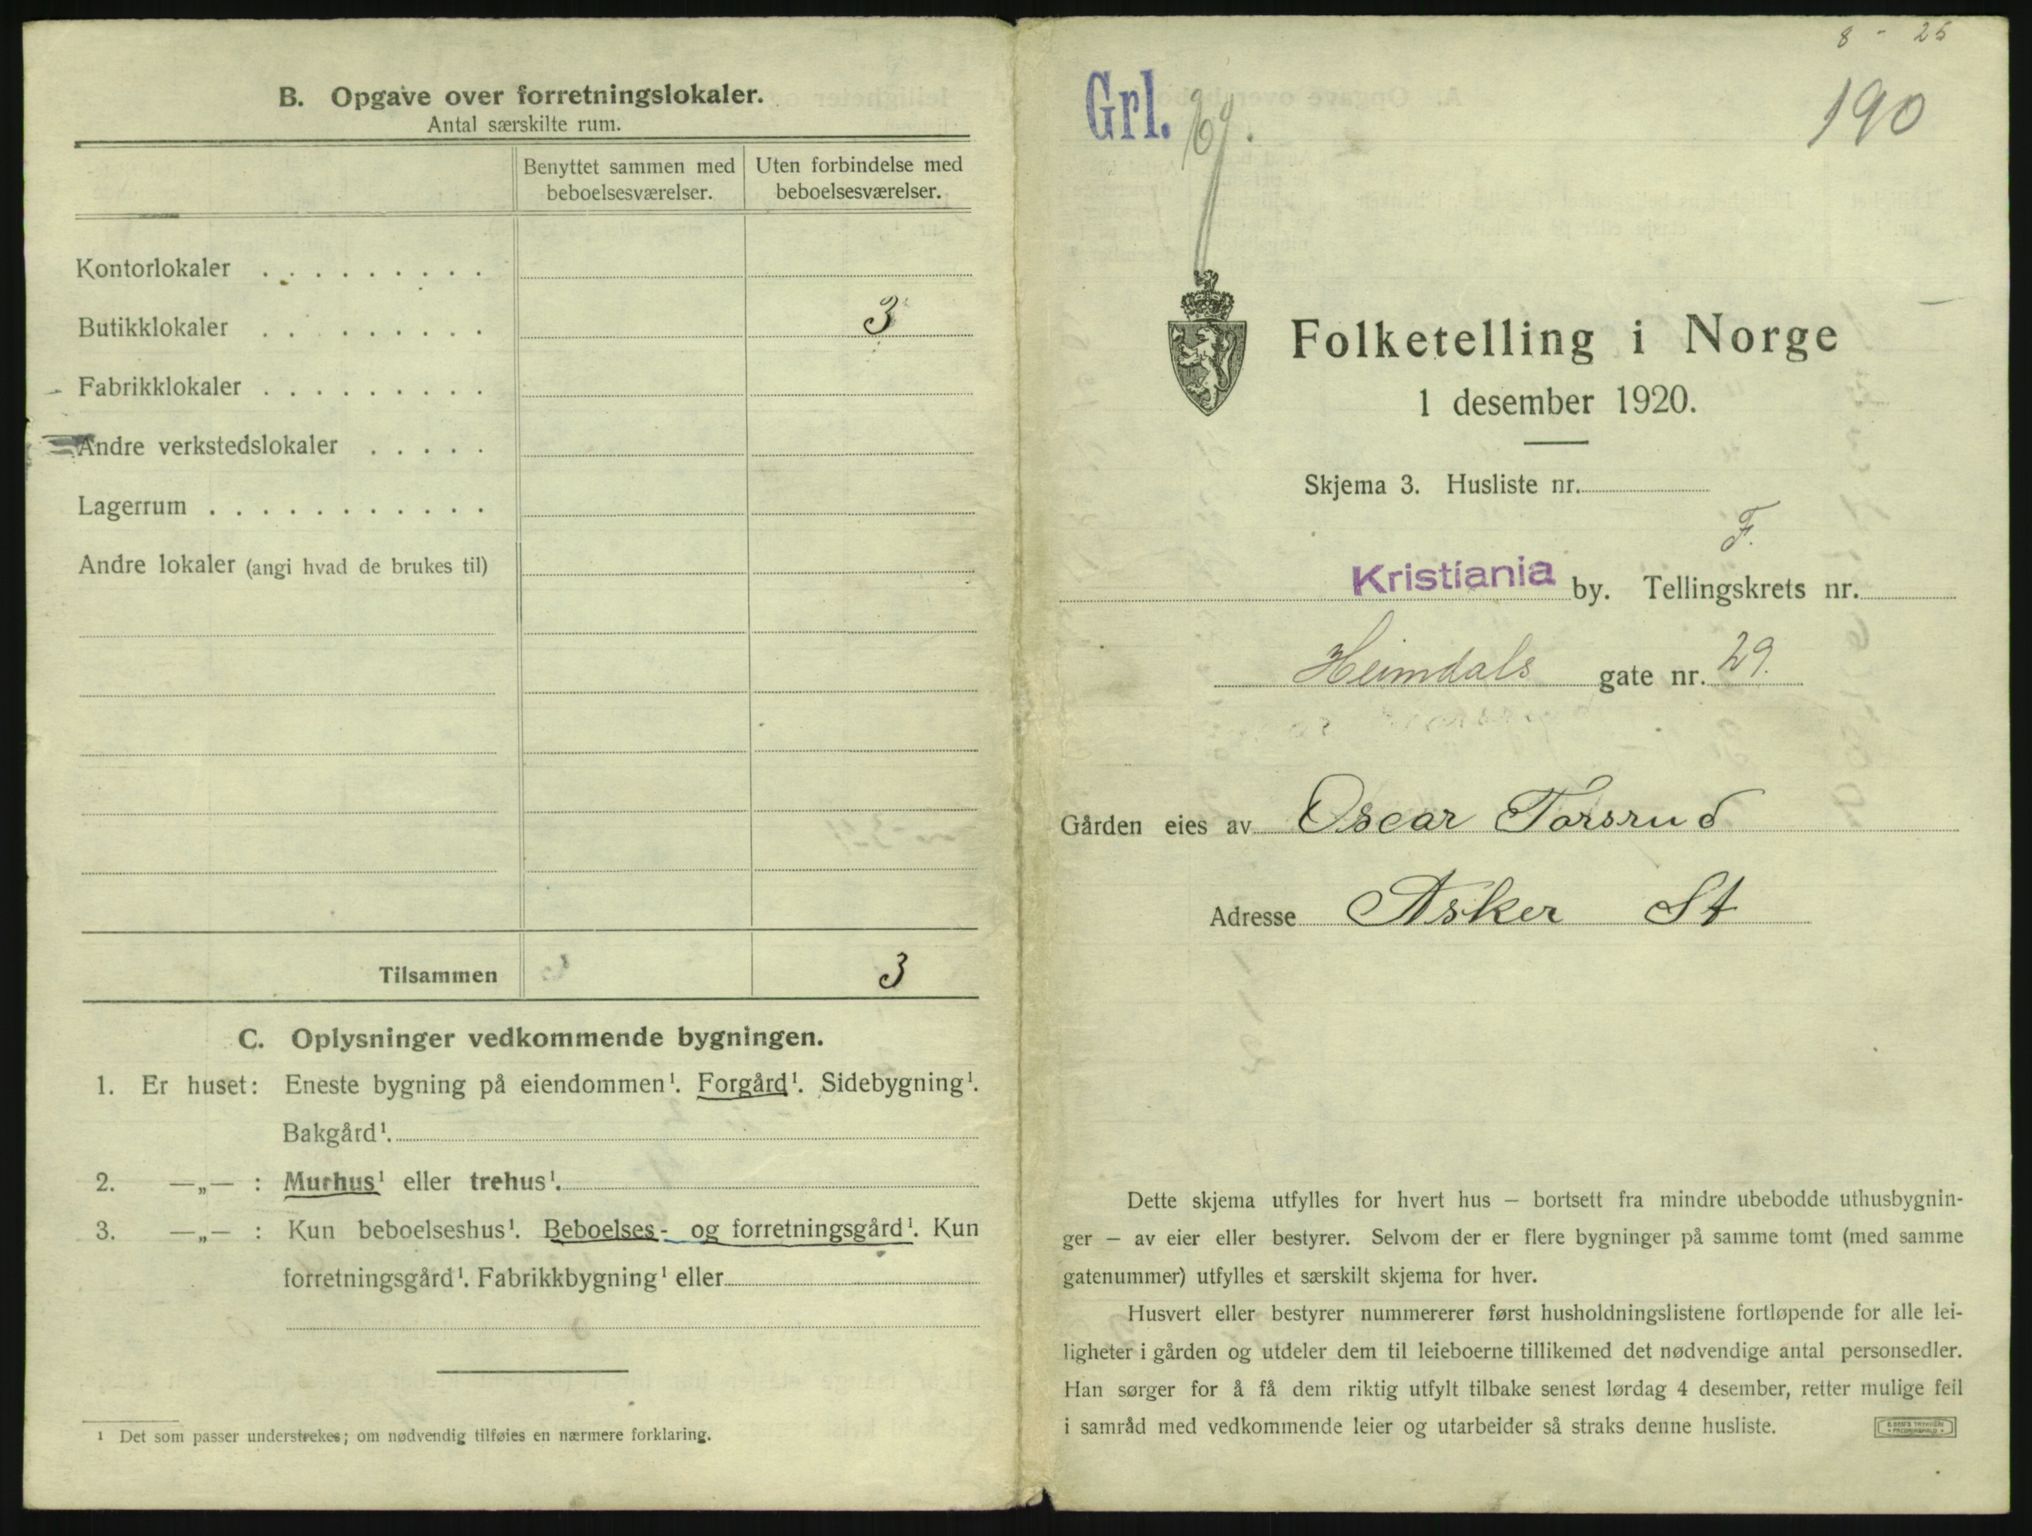 B. Opgave over forretningslokaler.
Antal særskilte rum.
Benyttet sammen med beboelsesværelser.
Uten forbindelse med beboelsesværelser.
Kontorlokaler . . . . . . . . .
Butikklokaler . . . . . . . . 3
Fabrikklokaler . . . . . . . . .
Andre verkstedslokaler . . . . .
Lagerrum . . . . . . . . . . .
Andre lokaler (angi hvad de brukes til)
Tilsammen 3
C. Oplysninger vedkommende bygningen.
1. Er huset: Eneste bygning på eiendommen¹. Forgård¹. Sidebygning¹.
Bakgård¹.
2. —„— : Murhus¹ eller trehus¹.
3. —„— : Kun beboelseshus¹. Beboelses- og forretningsgård¹. Kun
forretningsgård¹. Fabrikkbygning¹ eller
¹ Det som passer understrekes; om nødvendig tilføies en nærmere forklaring.
8 - 25
Grl. 69.
190
Folketelling i Norge
1 desember 1920.
Skjema 3. Husliste nr.
F.
Kristiania by. Tellingskrets nr.
Heimdals gate nr. 29.
Gården eies av Oscar Torsrud
Adresse Asker St
Dette skjema utfylles for hvert hus — bortsett fra mindre ubebodde uthusbygnin-
ger — av eier eller bestyrer. Selvom der er flere bygninger på samme tomt (med samme
gatenummer) utfylles et særskilt skjema for hver.
Husvert eller bestyrer nummererer først husholdningslistene fortløpende for alle lei-
ligheter i gården og utdeler dem til leieboerne tillikemed det nødvendige antal personsedler.
Han sørger for å få dem riktig utfylt tilbake senest lørdag 4 desember, retter mulige feil
i samråd med vedkommende leier og utarbeider så straks denne husliste.